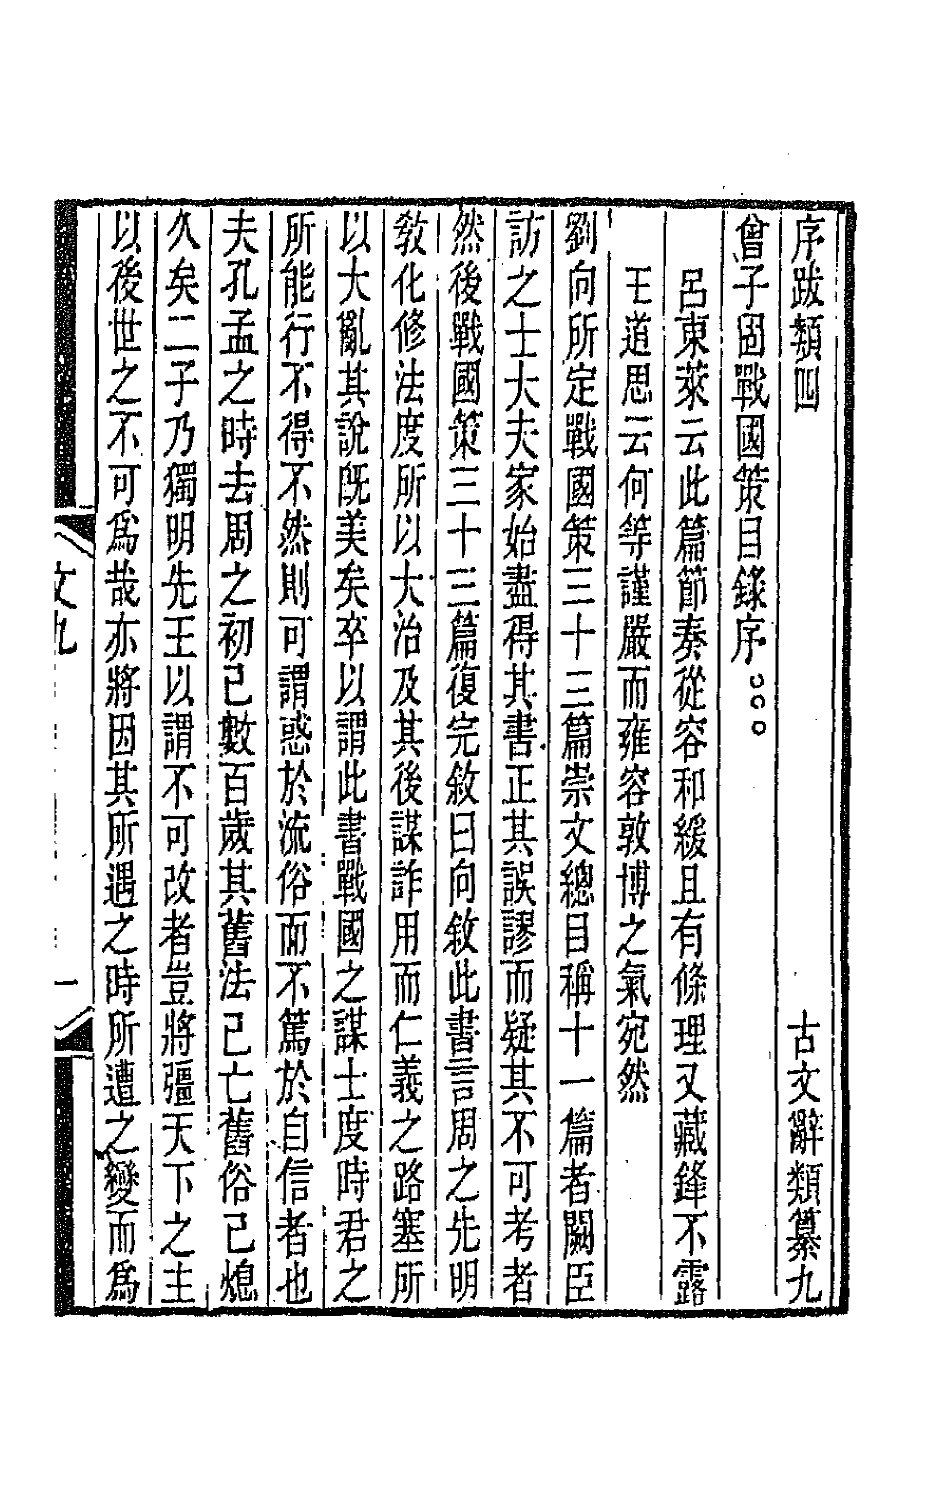 序跋類四　古文辭類纂九
曾子固戰國策目錄序○○○
呂東萊云此篇節奏從容和緩且有條理又藏鋒不露
王道思云何等謹嚴而雍容敦博之氣宛然
劉向所定戰國策三十三篇崇文總目稱十一篇者闕臣
訪之士大夫家始盡得其書正其誤謬而疑其不可考者
然後戰國策三十三篇復完敘曰向敘此書言周之先明
敎化修法度所以大治及其後謀詐用而仁義之路塞所
以大亂其說旣美矣卒以謂此書戰國之謀士度時君之
所能行不得不然則可謂惑於流俗而不篤於自信者也
夫孔孟之時去周之初已數百歲其舊法已亡舊俗已熄
久矣二子乃獨明先王以謂不可改者豈將彊天下之主
以後世之不可爲哉亦將因其所遇之時所遭之變而爲
文九　一